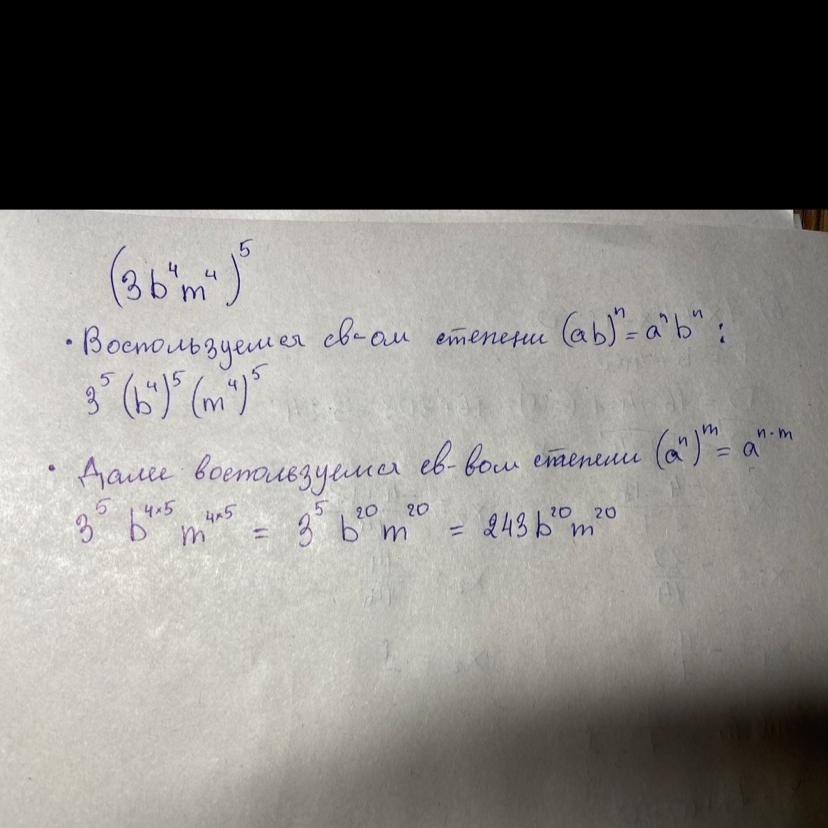 (3b⁴m⁴)⁵
• Воспользуемся св-ом степени (ab)ⁿ = aⁿbⁿ :
3⁵ (b⁴)⁵ (m⁴)⁵
• Далее воспользуемся св-вом степени (aⁿ)ᵐ = aⁿ·ᵐ
3⁵ b⁴ˣ⁵ m⁴ˣ⁵ = 3⁵ b²⁰ m²⁰ = 243b²⁰m²⁰